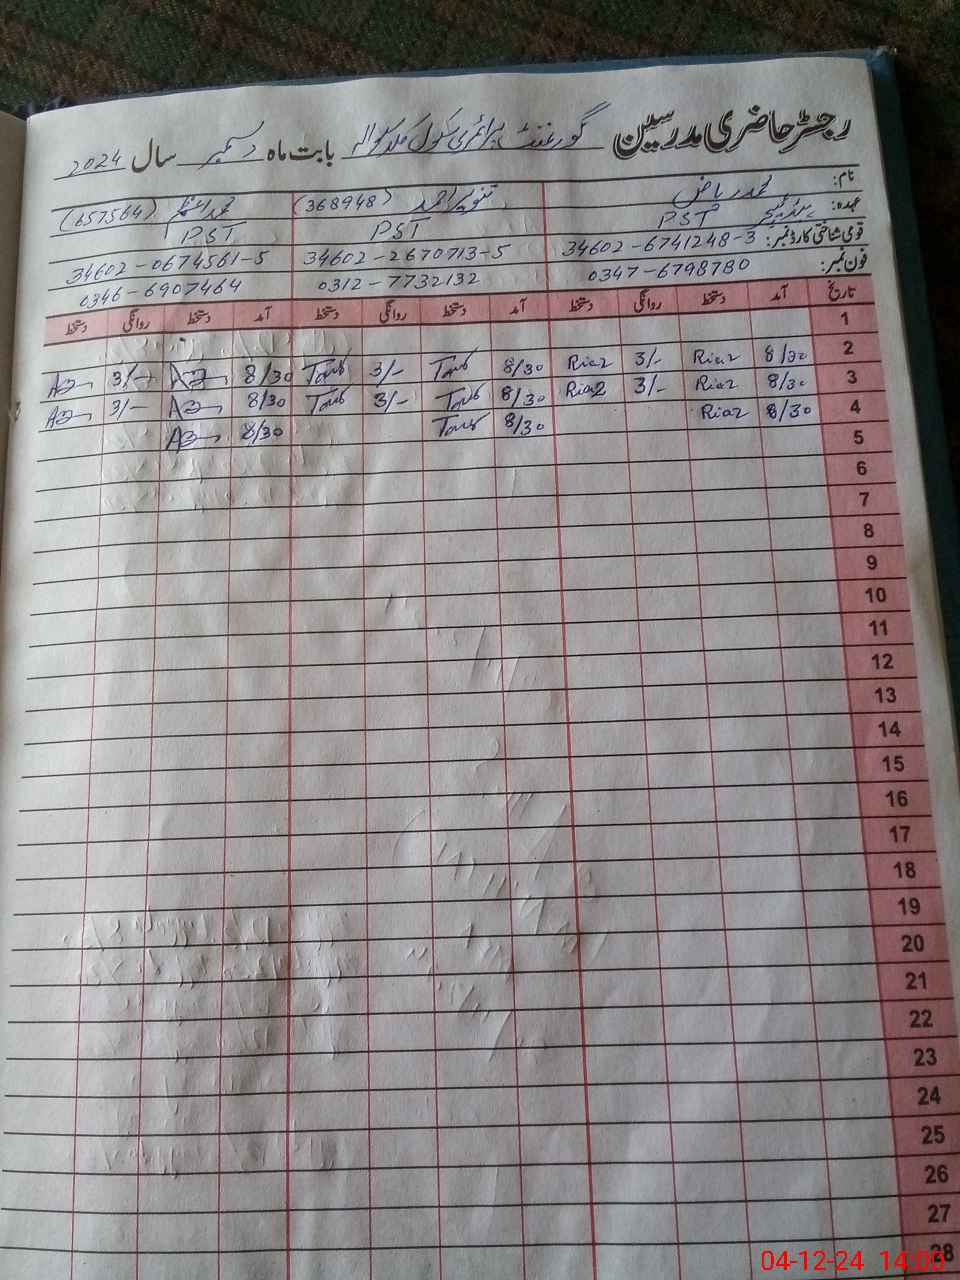 رجسٹر حاضری مدرسین گورنمنٹ پرائمری سکول بابت ماہ دسمبر سال 2024
نام: محمد ریاض تنویر احمد (368948) محمد (657564)
عہدہ: PST PST PST
قومی شناختی کارڈ نمبر: 34602-6741248-3 34602-2670713-5 34602-0674561-5
فون نمبر: 0347-6798780 0312-7732132 0346-6907464
تاریخ آمد دستخط روانگی دستخط آمد دستخط روانگی دستخط آمد دستخط روانگی دستخط
1
2 8/30 Riaz 3/- Riaz 8/30 3/- 8/30 3/-
3 8/30 Riaz 3/- Riaz 8/30 3/- 8/30 3/-
4 8/30 Riaz 8/30 8/30
5
6
7
8
9
10
11
12
13
14
15
16
17
18
19
20
21
22
23
24
25
26
27
28
04-12-24 14:00